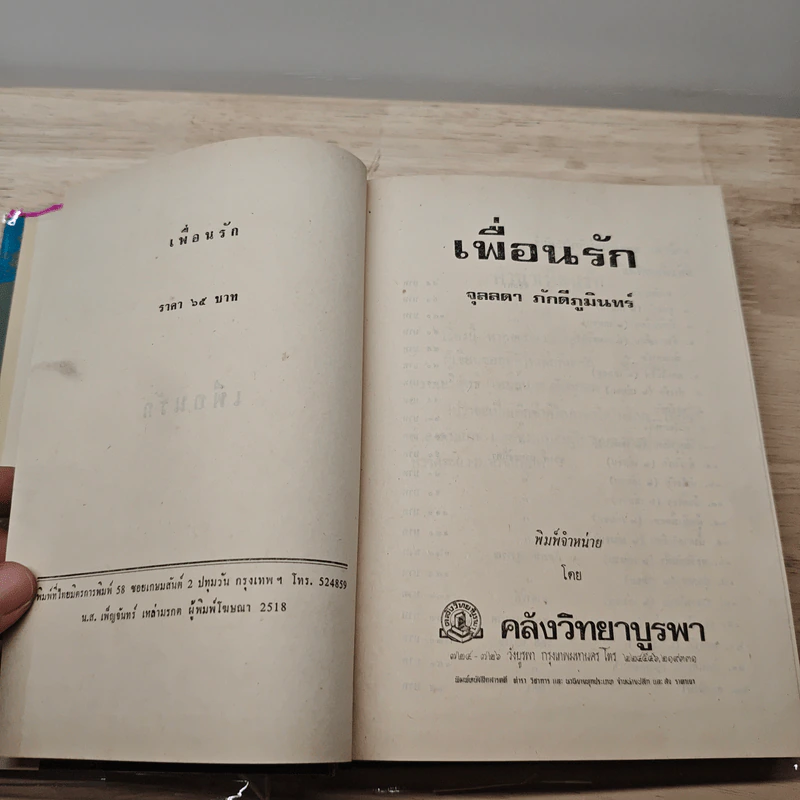 เพื่อนรัก
ราคา ๖๕ บาท
พิมพ์ที่ไทยมิตรการพิมพ์ 58 ซอยเกษมสันต์ 2 ปทุมวัน กรุงเทพ ฯ โทร. 524859
น.ส. เพ็ญจันทร์ เหล่ามรกต ผู้พิมพ์โฆษณา 2518
เพื่อนรัก
จุลลดา ภักดีภูมินทร์
พิมพ์จำหน่าย
โดย
คลังวิทยาบูรพา
๗๒๕ - ๗๒๖ วังบูรพา กรุงเทพมหานคร โทร ๒๒๔๕๔๖, ๒๑๙๓๓๑